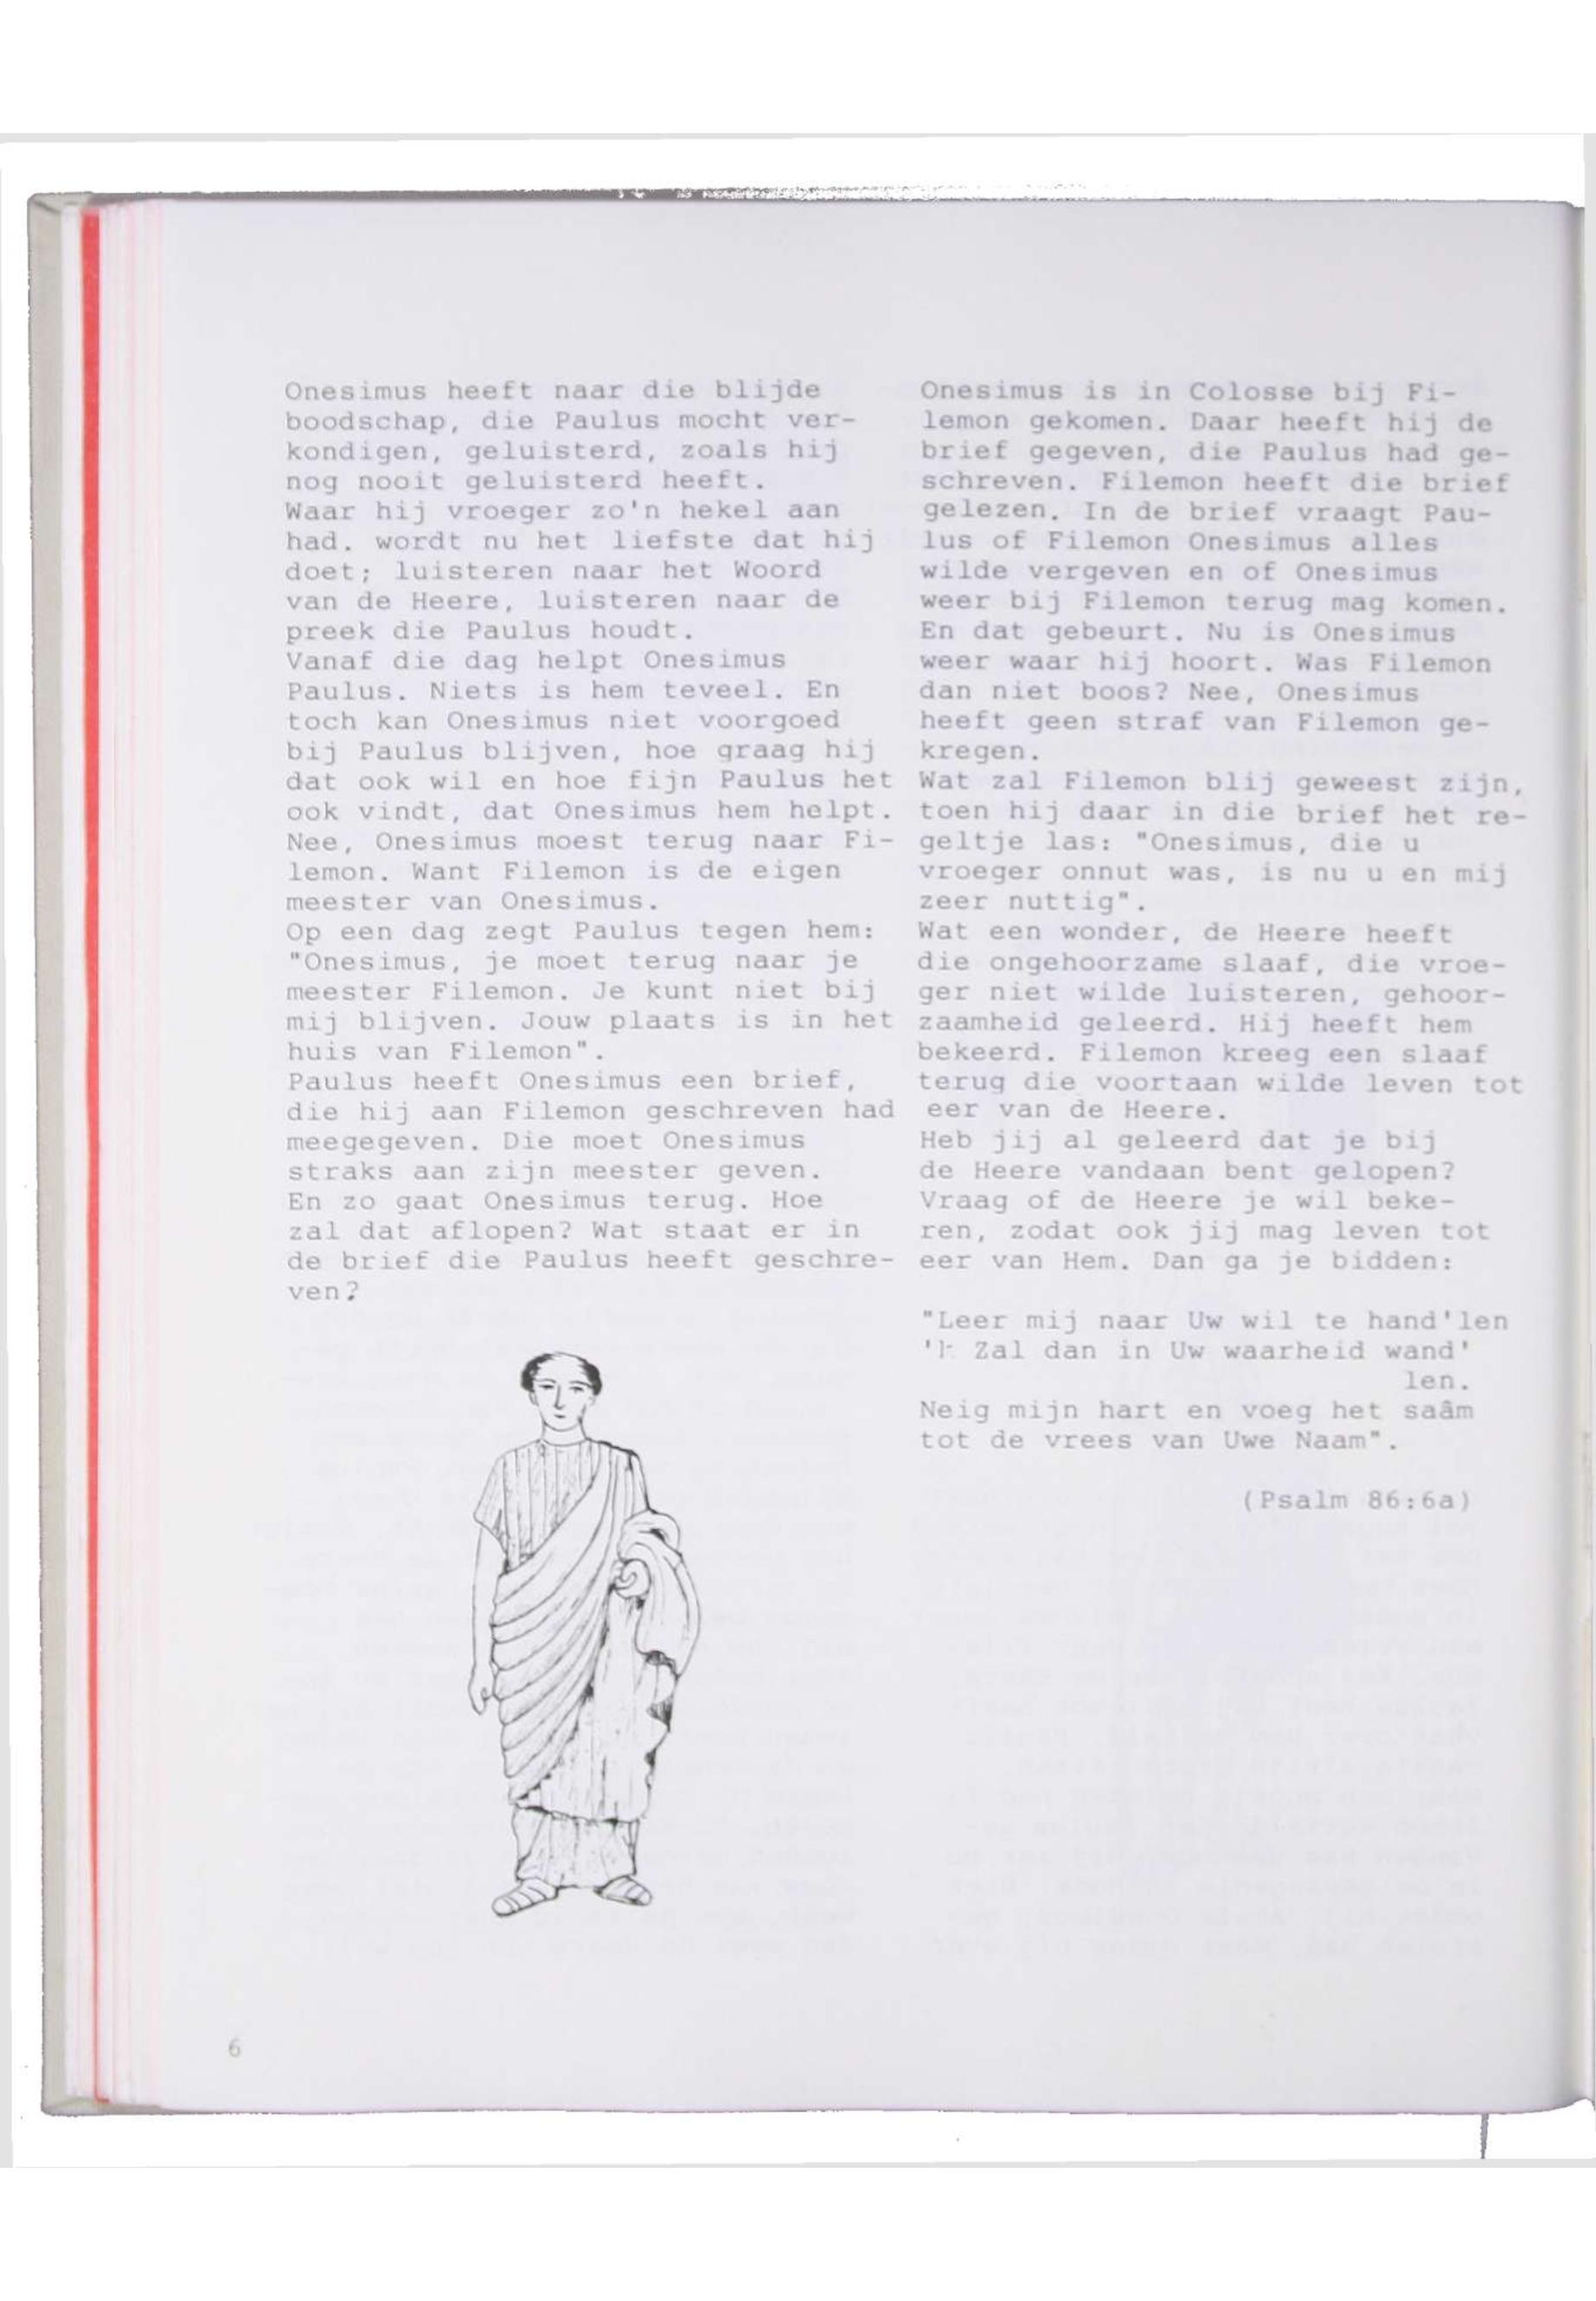 Onesimus heeft naar die blijde
boodschap, die Paulus mocht ver-
kondigen, geluisterd, zoals hij
nog nooit geluisterd heeft.
Waar hij vroeger zo'n hekel aan
had. wordt nu het liefste dat hij
doet; luisteren naar het Woord
van de Heere, luisteren naar de
preek die Paulus houdt.
Vanaf die dag helpt Onesimus
Paulus. Niets is hem teveel. En
toch kan Onesimus niet voorgoed
bij Paulus blijven, hoe graag hij
dat ook wil en hoe fijn Paulus het
ook vindt, dat Onesimus hem helpt.
Nee, Onesimus moest terug naar Fi-
lemon. Want Filemon is de eigen
meester van Onesimus.
Op een dag zegt Paulus tegen hem:
"Onesimus, je moet terug naar je
meester Filemon. Je kunt niet bij
mij blijven. Jouw plaats is in het
huis van Filemon".
Paulus heeft Onesimus een brief,
die hij aan Filemon geschreven had
meegegeven. Die moet Onesimus
straks aan zijn meester geven.
En zo gaat Onesimus terug. Hoe
zal dat aflopen? Wat staat er in
de brief die Paulus heeft geschre-
ven?
Onesimus is in Colosse bij Fi-
lemon gekomen. Daar heeft hij de
brief gegeven, die Paulus had ge-
schreven. Filemon heeft die brief
gelezen. In de brief vraagt Pau-
lus of Filemon Onesimus alles
wilde vergeven en of Onesimus
weer bij Filemon terug mag komen.
En dat gebeurt. Nu is Onesimus
weer waar hij hoort. Was Filemon
dan niet boos? Nee, Onesimus
heeft geen straf van Filemon ge-
kregen.
Wat zal Filemon blij geweest zijn,
toen hij daar in die brief het re-
geltje las: "Onesimus, die u
vroeger onnut was, is nu u en mij
zeer nuttig".
Wat een wonder, de Heere heeft
die ongehoorzame slaaf, die vroe-
ger niet wilde luisteren, gehoor-
zaamheid geleerd. Hij heeft hem
bekeerd. Filemon kreeg een slaaf
terug die voortaan wilde leven tot
eer van de Heere.
Heb jij al geleerd dat je bij
de Heere vandaan bent gelopen?
Vraag of de Heere je wil beke-
ren, zodat ook jij mag leven tot
eer van Hem. Dan ga je bidden:
"Leer mij naar Uw wil te hand'len
'k Zal dan in Uw waarheid wand'
len.
Neig mijn hart en voeg het saâm
tot de vrees van Uwe Naam".
(Psalm 86:6a)
6